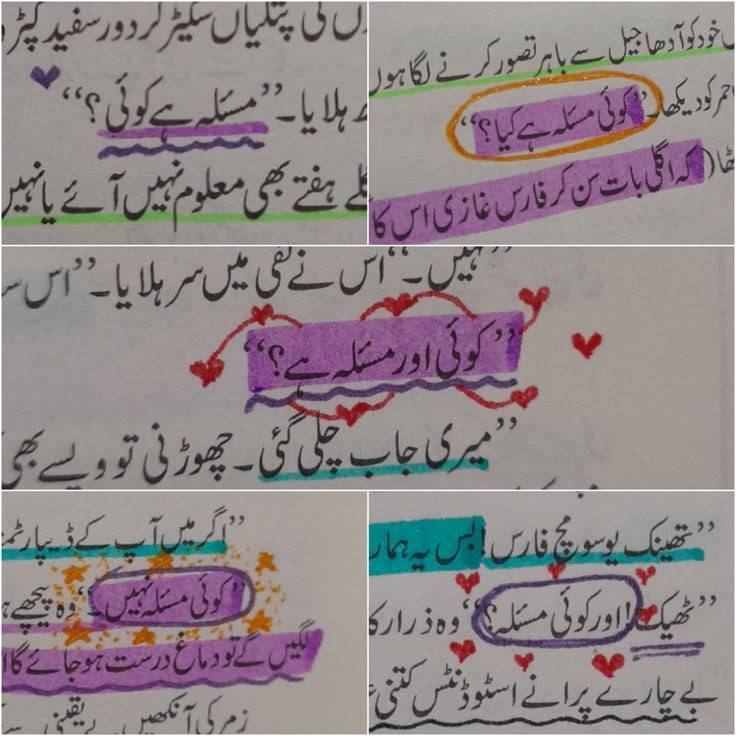 کی پتلیاں سکیڑ کر دور سفید کپڑو
ہلایا۔ ”مسئلہ ہے کوئی؟“
ہفتے بھی معلوم نہیں آئے یا نہیں
خود کو آدھا جیل سے باہر تصور کرنے لگا ہوں
احمر کو دیکھا۔ ”کوئی مسئلہ ہے کیا؟“
(کہ اگلی بات سن کر فارس غازی اس کا
”نہیں۔“ اس نے نفی میں سر ہلایا۔ ”اس
”کوئی اور مسئلہ ہے؟“
”میری جاب چلی گئی۔ چھوڑنی تو ویسے بھی
”اگر میں آپ کے ڈیپارٹمنٹ
”کوئی مسئلہ نہیں۔“ وہ پیچھے
لگیں گے تو دماغ درست ہو جائے گا
زمر کی آنکھیں بے یقینی سے
”تھینک یو سو مچ فارس! بس یہ ہمار
”ٹھیک! اور کوئی مسئلہ؟“ وہ ذرا رکا
بے چارے پرانے اسٹوڈنٹس کتنی